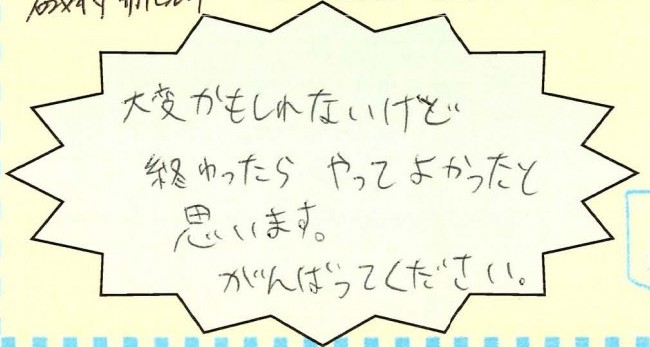 大変かもしれないけど
終わったら やってよかったと
思います。
がんばってください。